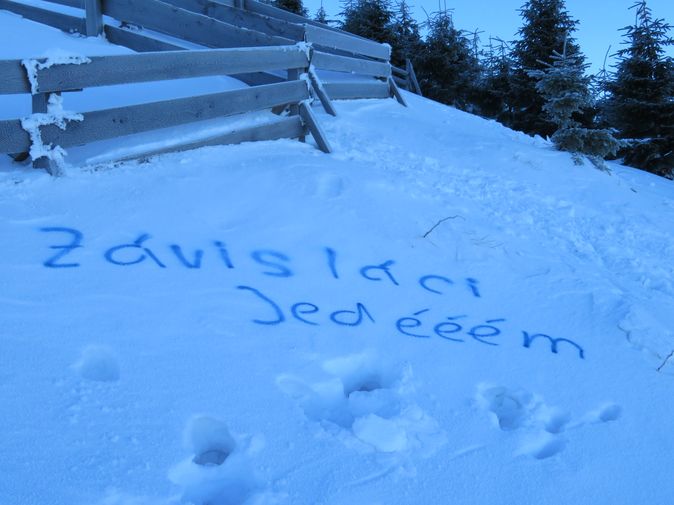 Závisláci
Jed ééém